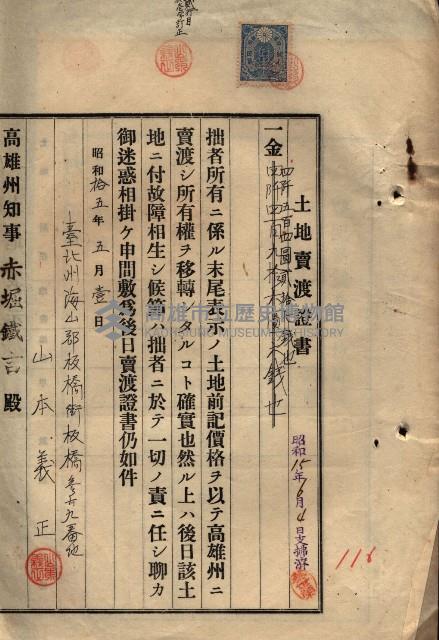 土地賣渡證書
一金
四阡五百四圓
拙者所有ニ係ル末尾表示ノ土地前記價格ヲ以テ高雄州ニ
賣渡シ所有權ヲ移轉シタルコト確實也然ル上ハ後日該土
地ニ付故障相生シ候節ハ拙者ニ於テ一切ノ責ニ任シ聊カ
御迷惑相掛ケ申間敷爲後日賣渡證書仍如件
昭和拾五年五月壹日
臺北州海山郡板橋街板橋
山本義正
高雄州知事赤堀鐵吉殿
昭和15年6月4日支拂濟
116
高雄市立歷史博物館
KAOHSIUNG MUSEUM OF HISTORY